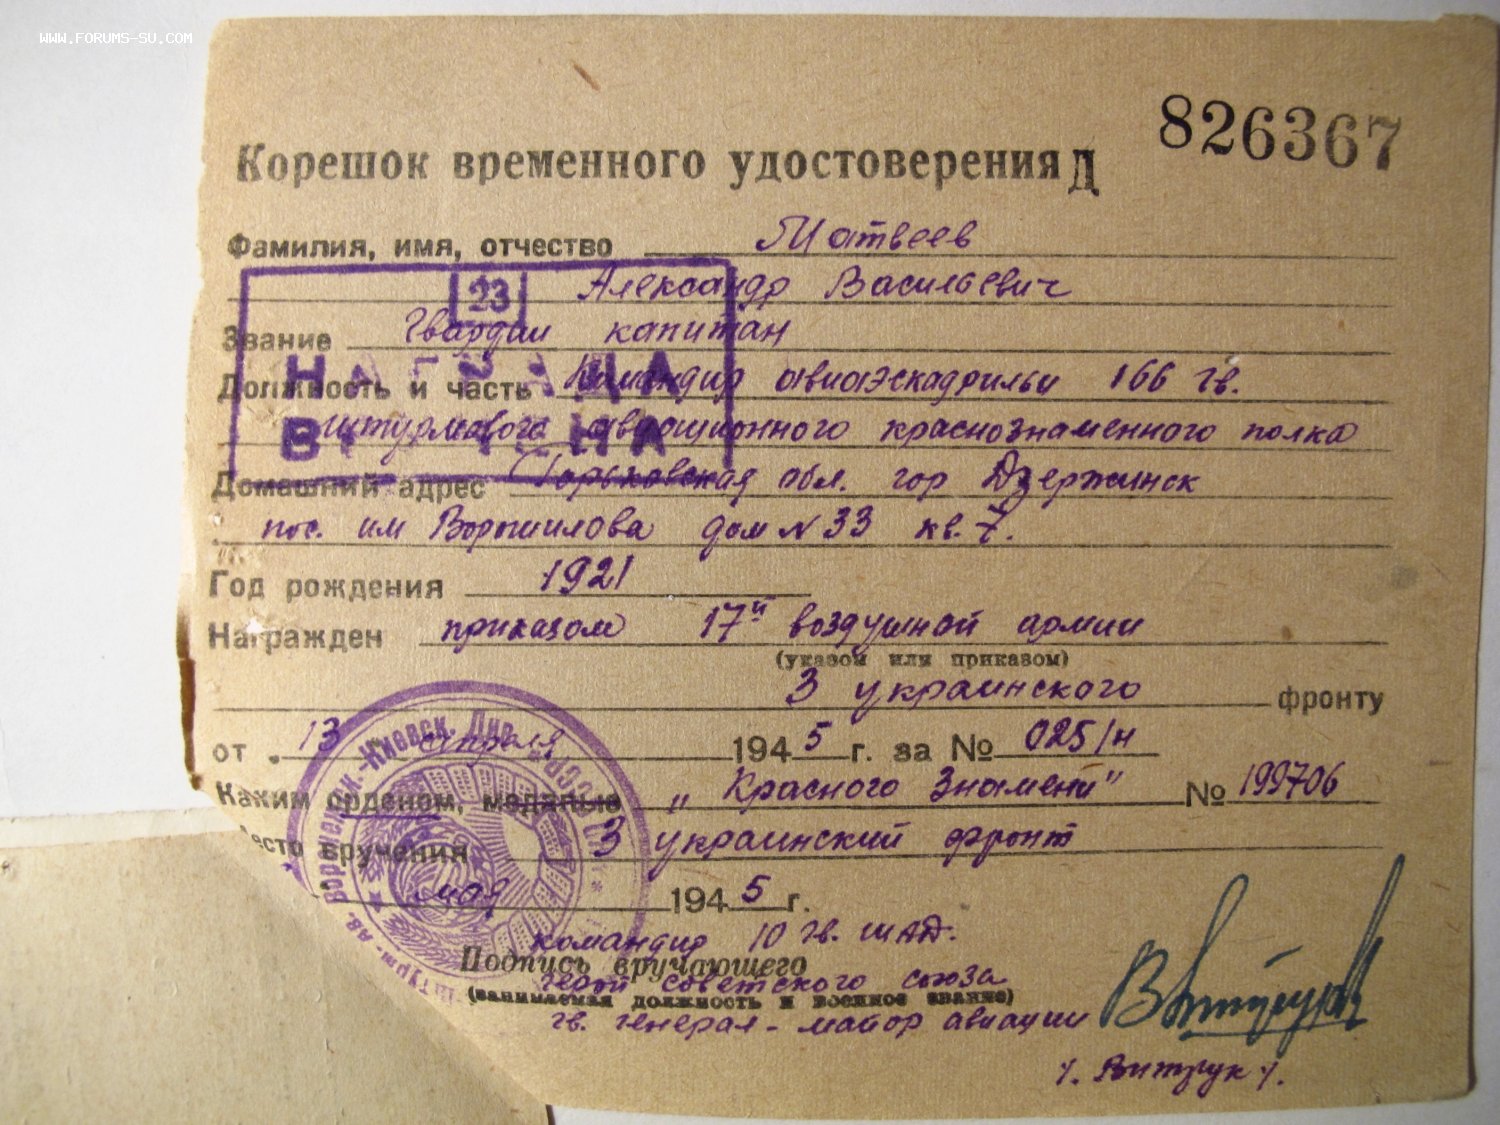 WWW.FORUMS-SU.COM
826367
Корешок временного удостоверения Д
Фамилия, имя, отчество Матвеев
Александр Васильевич
23
Звание Гвардии капитан
НАГРАДА
Должность и часть Командир авиаэскадрильи 166 гв.
штурмового авиационного краснознаменного полка
ВРУЧЕНА
Домашний адрес Горьковская обл. гор Дзержинск
пос. им Ворошилова дом N 33 кв. 7.
Год рождения 1921
Награжден приказом 17й воздушной армии
(указом или приказом)
3 украинского фронту
от 13 апреля 1945 г. за № 025/н
Каким орденом, медалью „Красного Знамени" № 199706
место вручения 3 украинский фронт
мая 1945 г.
командир 10 гв. шАД.
Подпись вручающего
герой советского союза
(занимаемая должность и военное звание)
гв. генерал-майор авиации
/. Витрук /.
Штурм. Ав. Воронежск.-Киевск. Див.
СССР